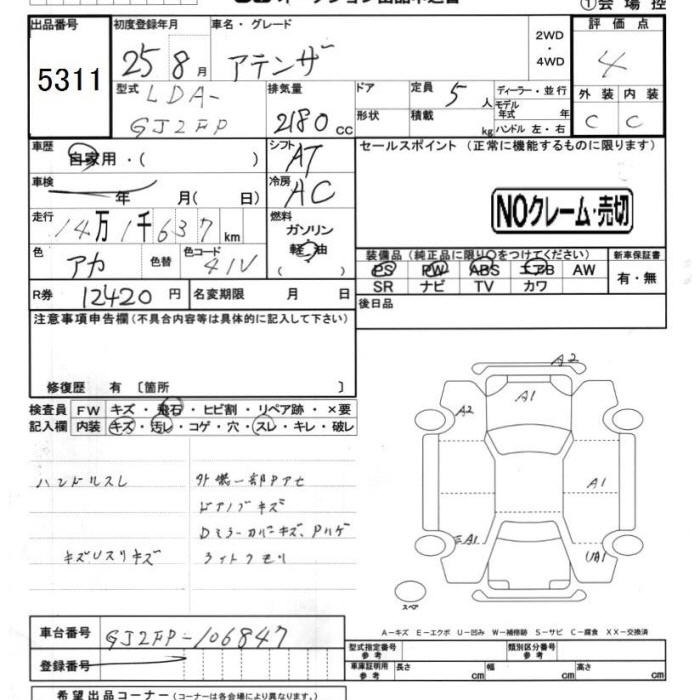 ①会場控
出品番号 初度登録年月 車名・グレード 2WD・4WD 評価点
5311 25 8月 アテンザ 4
型式 LDA-GJ2FP 排気量 2180 cc ドア 形状 定員 5人 積載 kg ディーラー・並行 モデル年式 年 ハンドル 左・右 外装 内装
C C
車歴 自家用・( ) シフト AT セールスポイント (正常に機能するものに限ります)
車検 年 月( 日) 冷房 AC
NOクレーム・売切
走行 14万1千637 km 燃料 ガソリン 軽油 ( )
色 アカ 色替 色コード 41V
装備品(純正品に限り○をつけてください) 新車保証書
PS PW ABS エアB AW 有・無
SR ナビ TV カワ
R券 12420円 名変期限 月 日 後日品
注意事項申告欄(不具合内容等は具体的に記入して下さい)
修復歴 有 〔箇所 〕
検査員 FW キズ・飛石・ヒビ割・リペア跡・×要
記入欄 内装 キズ・汚レ・コゲ・穴・スレ・キレ・破レ
ハンドルスレ 外装一部Pアセ
ドアノブキズ
Dミラーカバーキズ、Pハゲ
キズUスリキズ ライトクモリ
A2
A1
A2
A1
A1
UA1
スペア
A-キズ E-エクボ U-凹み W-補修跡 S-サビ C-腐食 XX-交換済
車台番号 GJ2FP-106847
登録番号
型式指定番号 参考 類別区分番号 参考
車庫証明用 参考 長さ cm 幅 cm 高さ cm
希望出品コーナー(コーナーは各会場により異なります。)